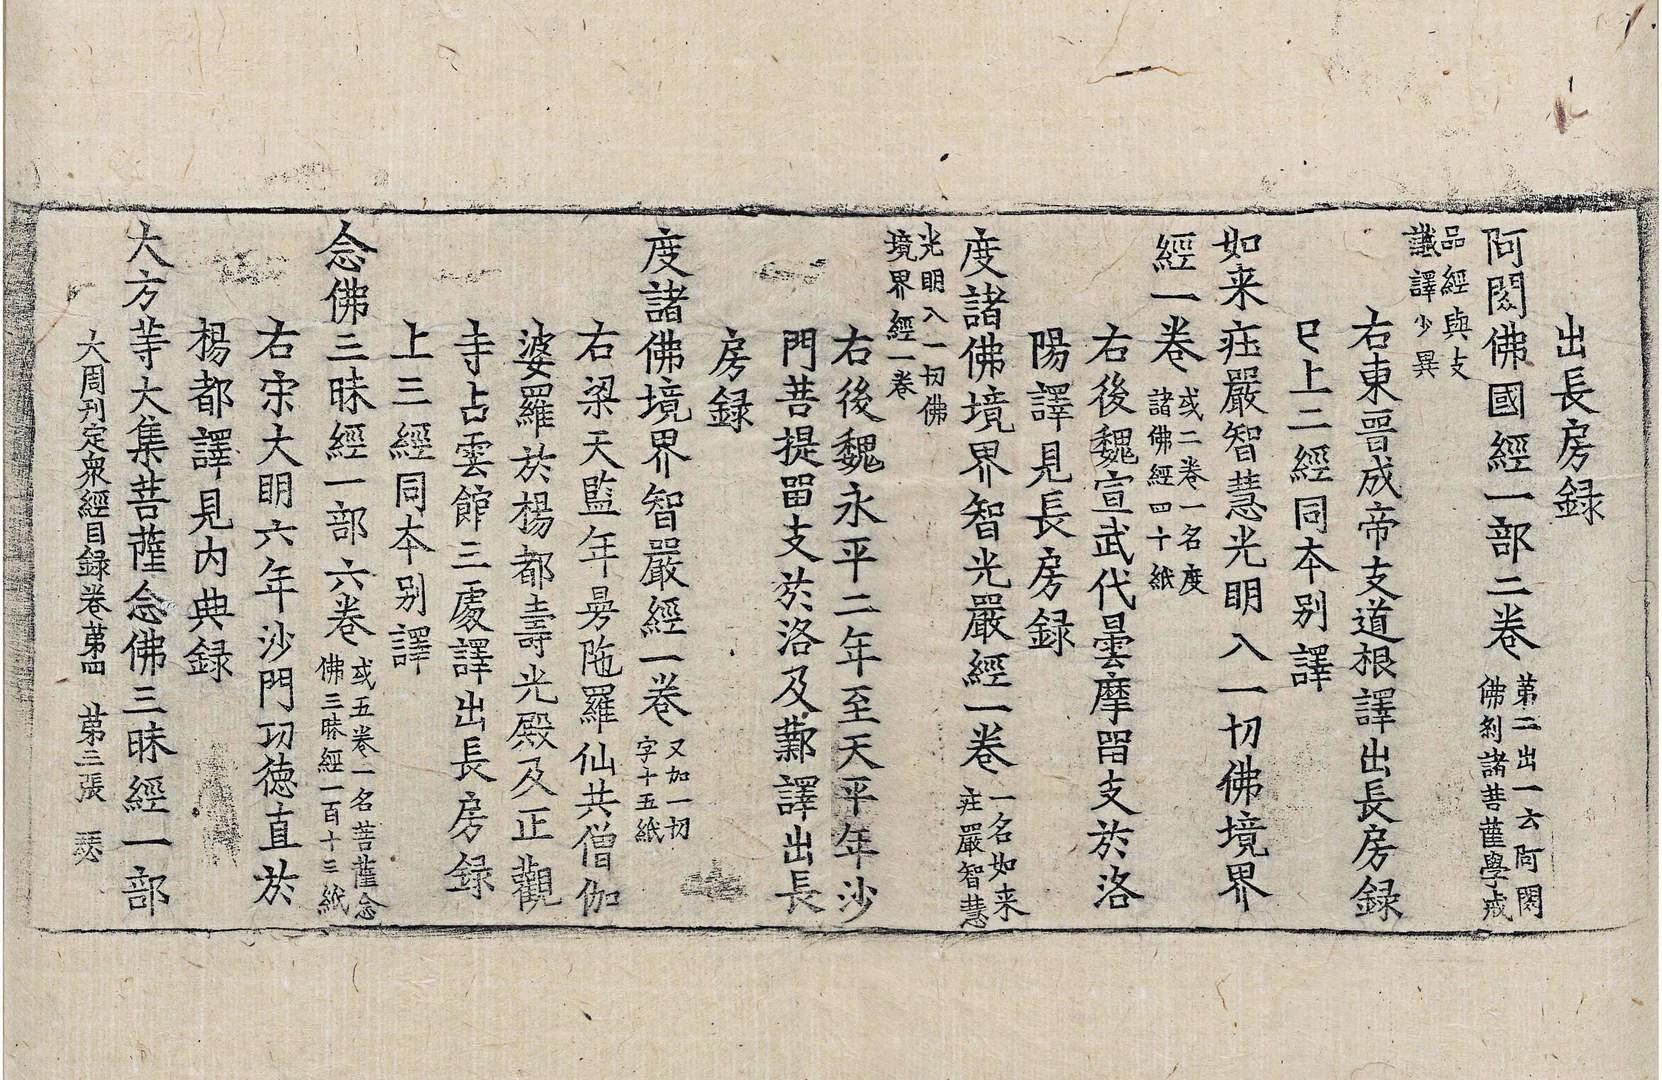 出長房録
阿閦佛國經一部二卷 第二出一云阿閦佛刹諸菩薩學戒
品經與支讖譯少異
右東晋成帝支道根譯出長房録
已上二經同本别譯
如来莊嚴智慧光明入一切佛境界
經一卷 或二卷一名度諸佛經四十紙
右後魏宣武代曇摩留支於洛
陽譯見長房録
度諸佛境界智光嚴經一卷 一名如来莊嚴智慧
光明入一切佛境界經一卷
右後魏永平二年至天平年沙
門菩提留支於洛及鄴譯出長
房録
度諸佛境界智嚴經一卷 又加一切字十五紙
右梁天監年㬅陁羅仙共僧伽
婆羅於楊都壽光殿及正觀
寺占雲館三處譯出長房録
上三經同本别譯
念佛三昧經一部六卷 或五卷一名菩薩念佛三昧經一百十三紙
右宋大明六年沙門功德直於
楊都譯見内典録
大方等大集菩薩念佛三昧經一部
大周刊定衆經目録卷第四 第三張 瑟